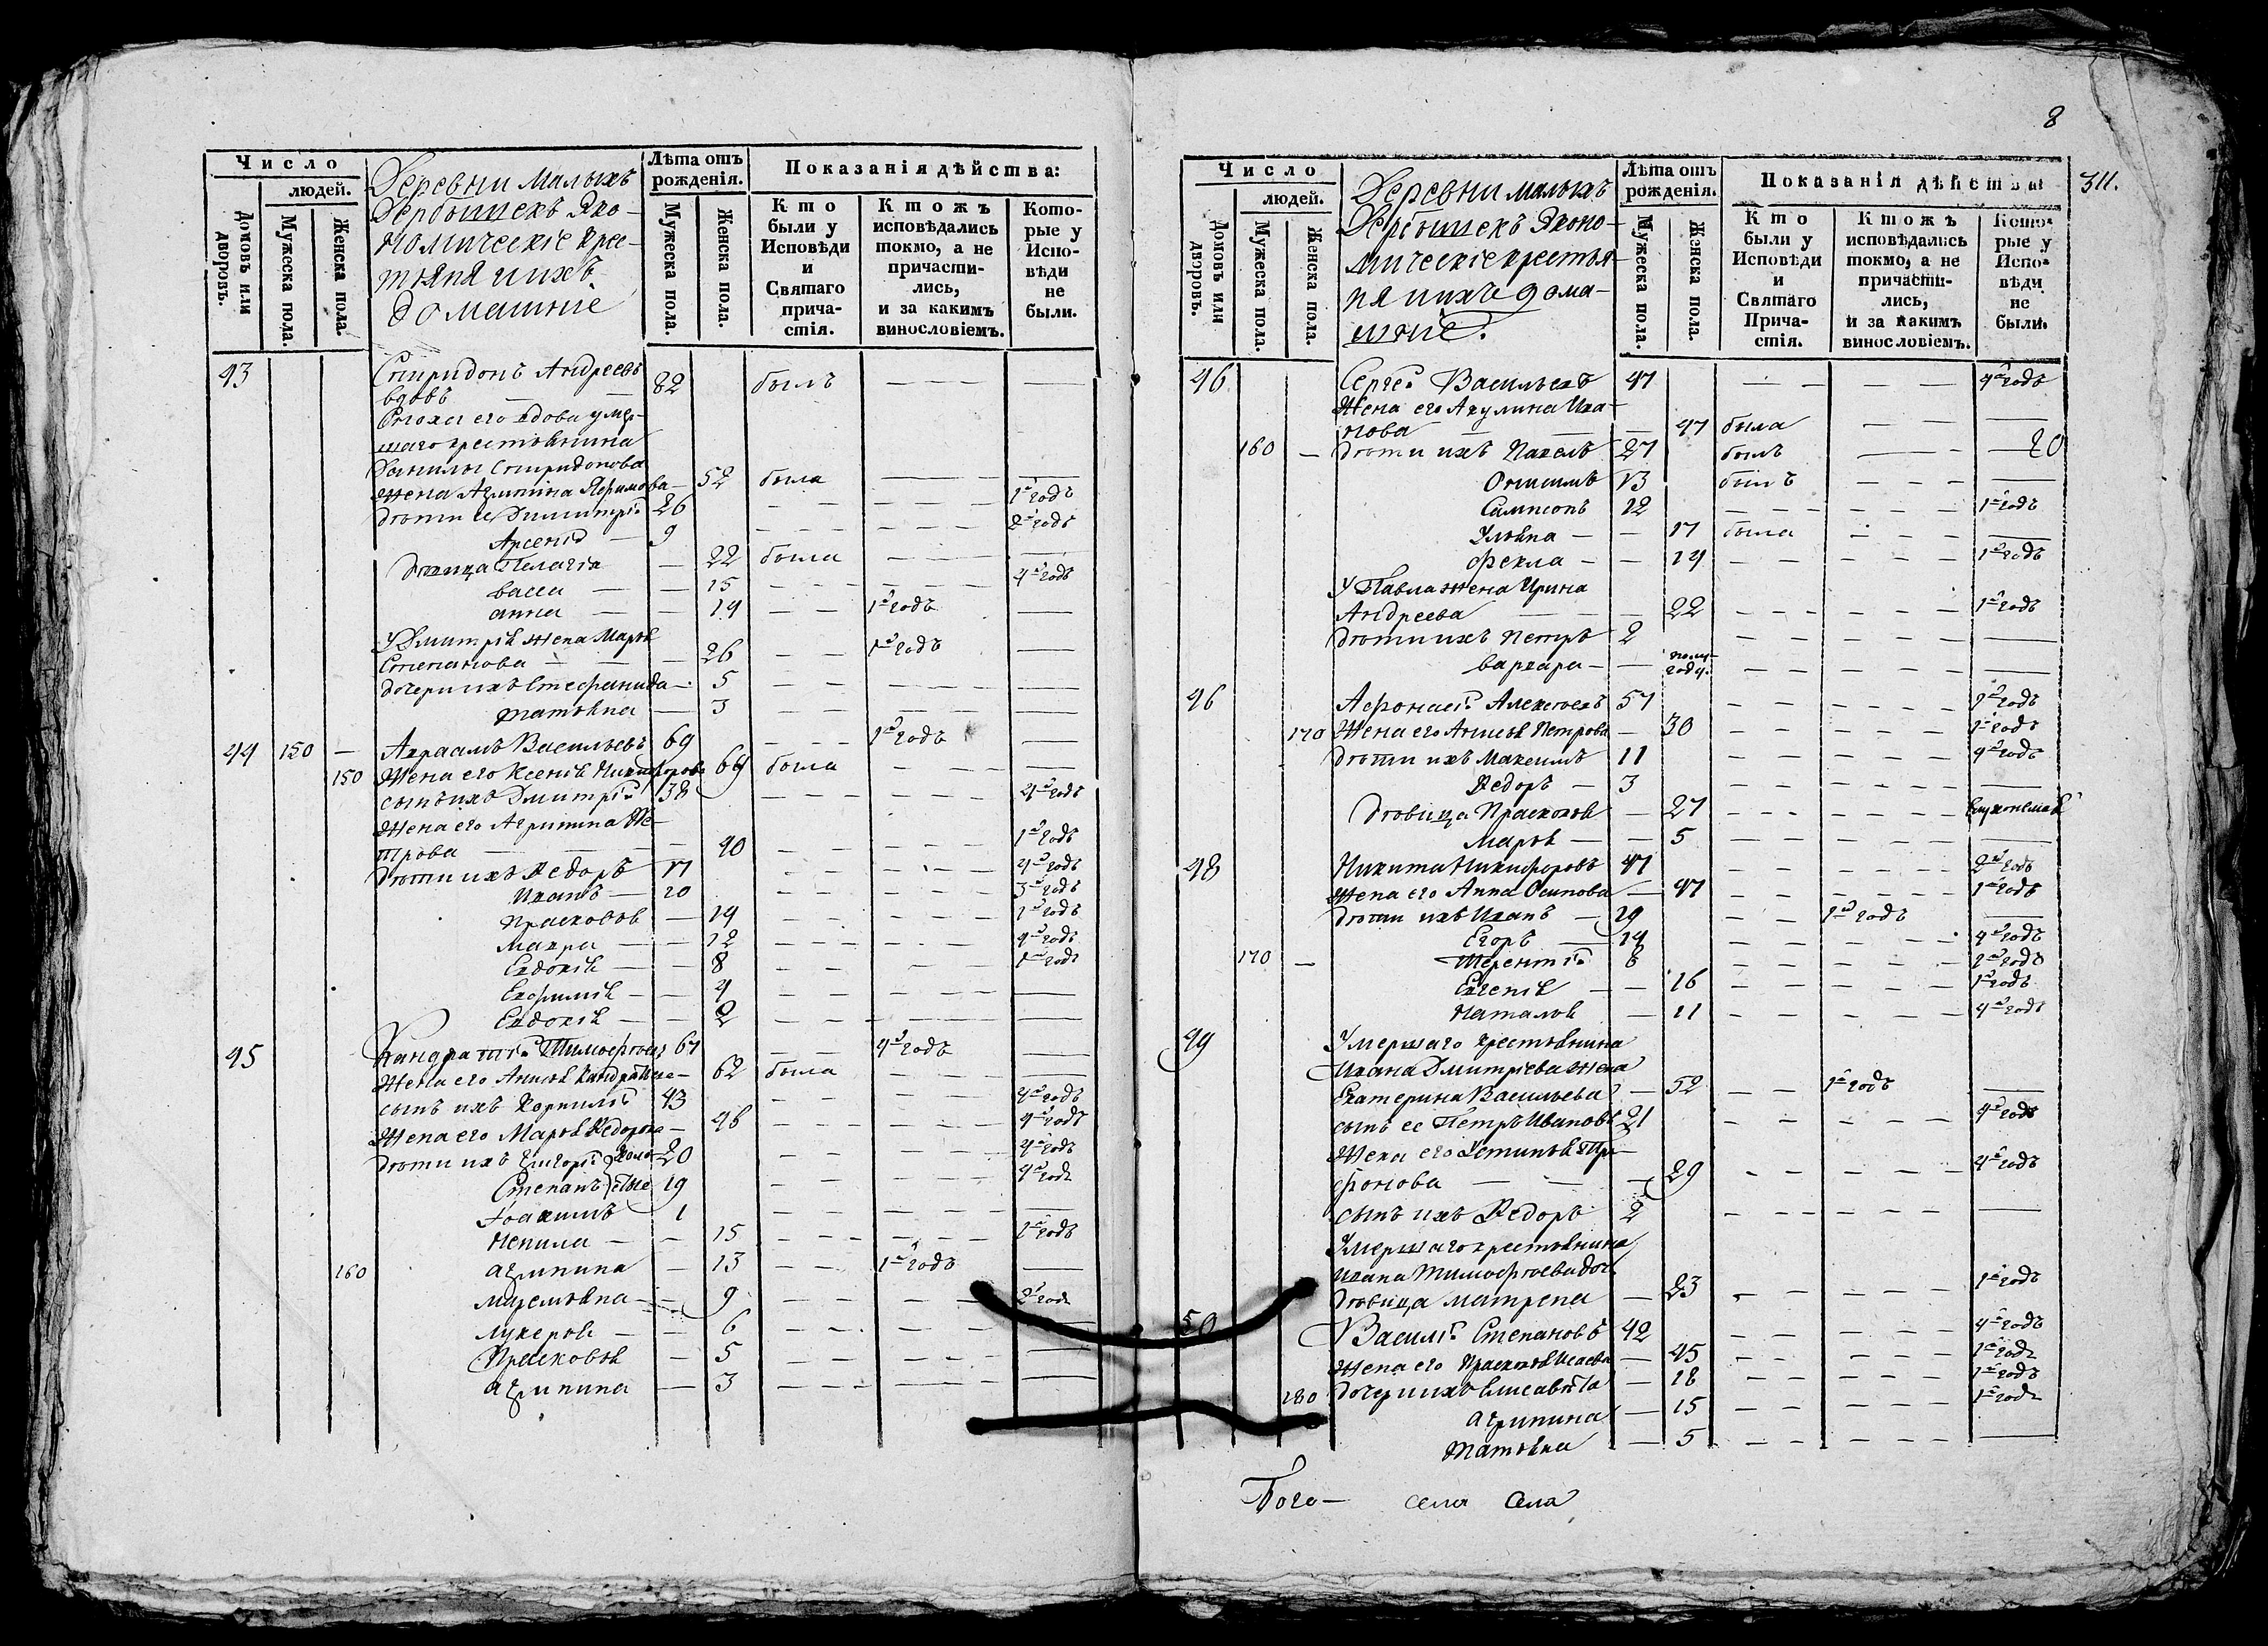 Число
людей.
Домовъ или дворовъ.
Мужеска пола.
Женска пола.
Деревни Малыхъ
Дербышекъ Эко-
номическіе крес-
тьяня и ихъ
домашніе
Лѣта отъ
рожденія.
Мужеска пола.
Женска пола.
Показанія дѣйства:
Кто
были у
Исповѣди
и
Святаго
прича-
стія.
Ктожъ
исповѣдались
токмо, а не
причасти-
лись,
и за какимъ
винословіемъ.
Кото-
рые у
Испо-
вѣди
не
были.
43 Спиридонъ Андреевъ
вдовъ — — 82 былъ — — — —
Сноха его вдова умер-
шаго крестьянина
Данилы Спиридонова
жена Агрипина — 52 была — — — —
дѣти ее Димитрій 26 — — — — — 1й годъ
Арсеній — 9 — — — — — 2й годъ
Дѣвица Пелагія — 22 была — — — —
васса — — 15 — — — — — 4й годъ
анна — — 14 — — 1й годъ —
У Дмитрія жена Марья
Степанова — — — 26 — — 1й годъ —
дочери ихъ Стефанида — 5 — — — — — —
татьяна — 3 — — — — —
44 150 — Авраамъ Васильевъ 69 — — — 1й годъ —
150 Жена его Ксенія Никифорова 69 была — — — —
сынъ ихъ Дмитрій 38 — — — — — — 4й годъ
Жена его Агрипина Пе-
трова — — — — 40 — — — — — 1й годъ
Дѣти ихъ Ѳедоръ 17 — — — — — 4й годъ
Иванъ — 10 — — — — — 3й годъ
Прасковья — 14 — — — — — 1й годъ
Мавра — — 12 — — — — — 4й годъ
Евдокія — — 8 — — — 1й годъ
Евфимія — — 4 — — — — — —
Евдокія — — 2 — — — — — —
45 Кандратій Тимофѣевъ 67 — — 4й годъ —
Жена его Анисья — 62 была — — — —
сынъ ихъ Корнилій 43 — — — — — 4й годъ
Жена его Марья Ѳедорова — 46 — — — — — — 4й годъ
дѣти ихъ Григорій 20 — — — — — 4й годъ
Степанъ 19 — — — — — 4й годъ
Іоакимъ 1 — — — — — —
Ненила — — 15 — — — — — 1й годъ
160 агрипина — 13 — — 1й годъ —
маремьяна — — 9 — — — — 2й годъ
лукерья — — 6 — — — — — —
Прасковья — 5 — — — — — —
агрипина — 3 — — — — — —
8
Число
людей.
Домовъ или дворовъ.
Мужеска пола.
Женска пола.
Деревни малыхъ
Дербышекъ Эконо-
мическіе крестья-
ня и ихъ дома-
шніе.
Лѣта отъ
рожденія.
Мужеска пола.
Женска пола.
Показанія дѣйства:
311.
Кто
были у
Исповѣди
и
Святаго
Прича-
стія.
Ктожъ
исповѣдались
токмо, а не
причасти-
лись,
и за какимъ
винословіемъ.
Кото-
рые у
Испо-
вѣди
не
были.
46 Сергѣй Васильевъ 47 — — — — 4й годъ
Жена его Акулина Ива-
нова — — — 47 была — — —
160 — дѣти ихъ Павелъ 27 былъ — — 20
Онисимъ 13 былъ — — — —
Сампсонъ 12 — — — — — 1й годъ
Ульяна — — 17 была — — — —
Ѳекла — — 14 — — — — — 1й годъ
У Павла жена Ирина
Андреева — — — 22 — — — — — 1й годъ
дѣти ихъ Петръ 2 — — — — — —
варвара — — полу-
году. — — — — — —
46 Афонасій Алексѣевъ 57 — — — — — 1й годъ
170 Жена его Анисья Петрова — 30 — — — — — 1й годъ
дѣти ихъ Максимъ 11 — — — — — 4й годъ
Ѳедоръ — 3 — — — — — —
дѣвица Прасковья — 27 — — — — — —
Марья — — 5 — — — — — —
48 Никита Никифоровъ 47 — — — — — 2й годъ
жена его Анна Осипова — 47 — — — — — 1й годъ
дѣти ихъ Иванъ — 19 — — 1й годъ —
Егоръ — 14 — — — — — 4й годъ
170 — Терентій 8 — — — — — 2й годъ
Евгенія — — 16 — — — — — 1й годъ
Наталья — 11 — — — — — 4й годъ
49 Умершаго крестьянина
Ивана Дмитріева жена
Екатерина Васильева — 52 — — 1й годъ —
сынъ ее Петръ Ивановъ 21 — — — — — 4й годъ
Жена его Устинья Три-
фонова — — — 29 — — — — — 4й годъ
сынъ ихъ Ѳедоръ 2 — — — — — —
Умершаго крестьянина
Ивана Тимофѣева доч.
дѣвица матрена — 23 — — — — — 1й годъ
50 Василій Степановъ 42 — — — — — 4й годъ
жена его Прасковья Исаева — 45 — — — — — 1й годъ
180 дочери ихъ Елисавѣта — 18 — — — — — 1й годъ
агрипина — 15 — — — — — 1й годъ
татьяна — 5 — — — — — —
Бого— села Села